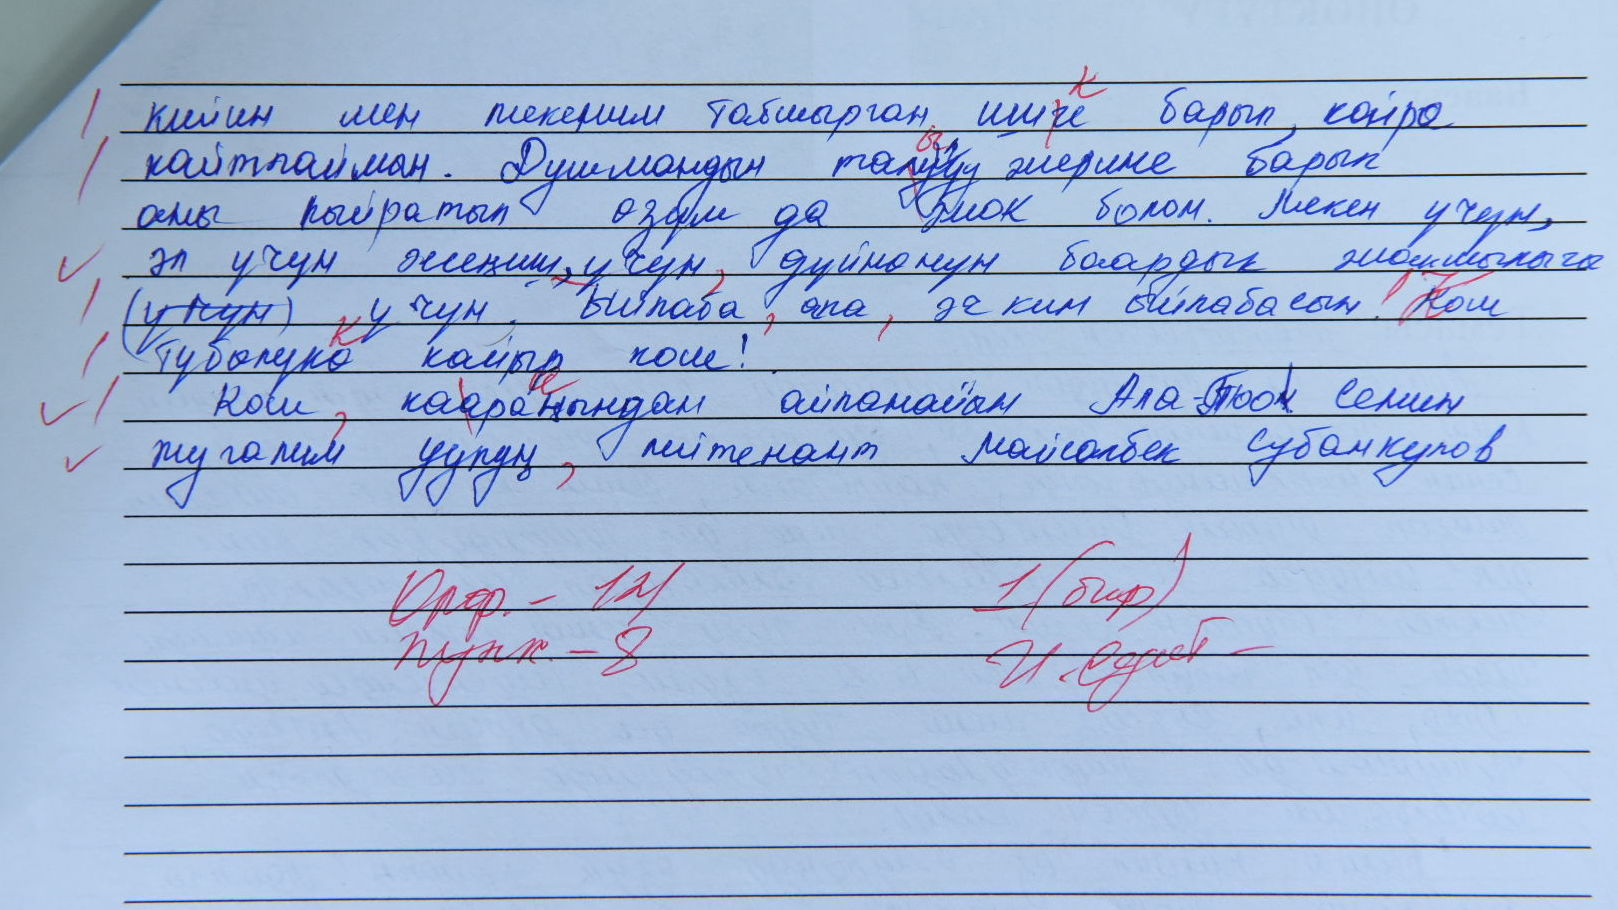 кийин мен мекеним тапшырган ишке барып, кайра
кайтпаймын. Душмандын талуу жерине барып
аны кыйратып өзүм да жок болом. Мекен үчүн,
эл үчүн жеңиш, үчүн, дүйнөнүн баардык жакшылыгы
(үчүн) үчүн. Ыйлаба, апа, эч ким ыйлабасын! Кош
түбөлүкө кайыр кош!
Кош, каараныңдан айланайын Ала-Тоо! Сенин
мугалим уулуң, лейтенант Майсалбек Субанкулов
Орф. - 12/
Пунк. - 8
1 (бир)